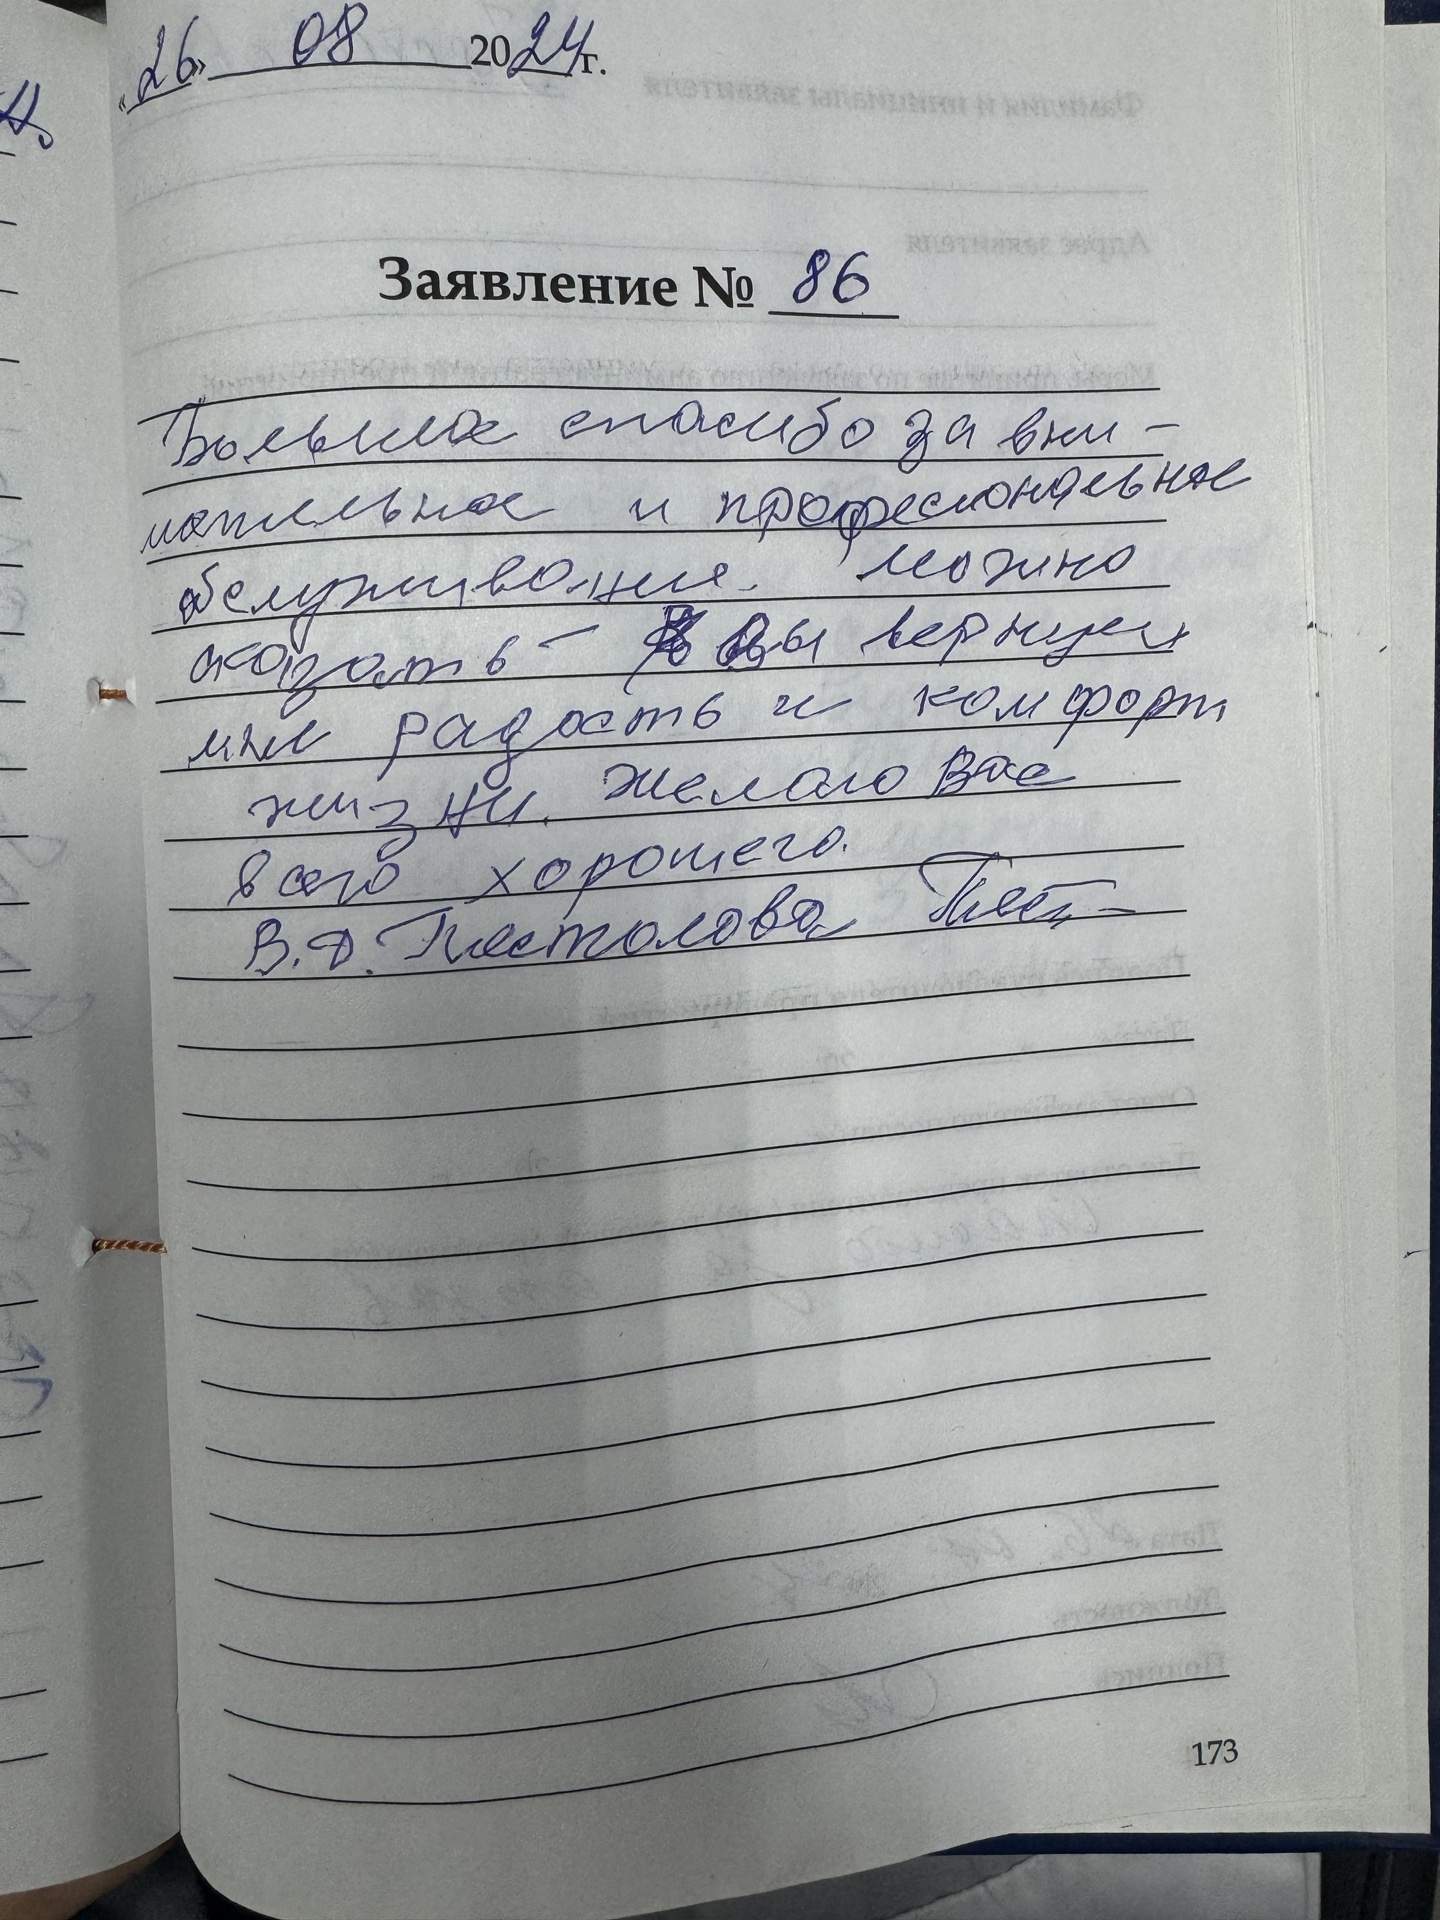 «26» 08 2024 г.
Заявление № 86
Большое спасибо за вни-
мательное и професиональное
обслуживание. Можно
сказать – Вы вернули
мне радость и комфорт
жизни. Желаю Вас
всего хорошего.
В.Д. Пестолова
173